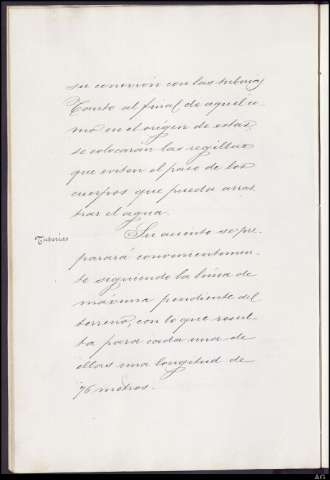 su conexión con las tuberias
Tanto al final de aquel co-
mo en el origen de estas,
se colocarán las regillas
que eviten el paso de los
cuerpos que pueda arras
trar el agua.
Tuberias
Su asiento se pre-
parará convenientemen-
te siguiendo la linea de
máxima pendiente del
terreno, con lo que resul-
ta para cada una de
ellas una longitud de
76 metros.